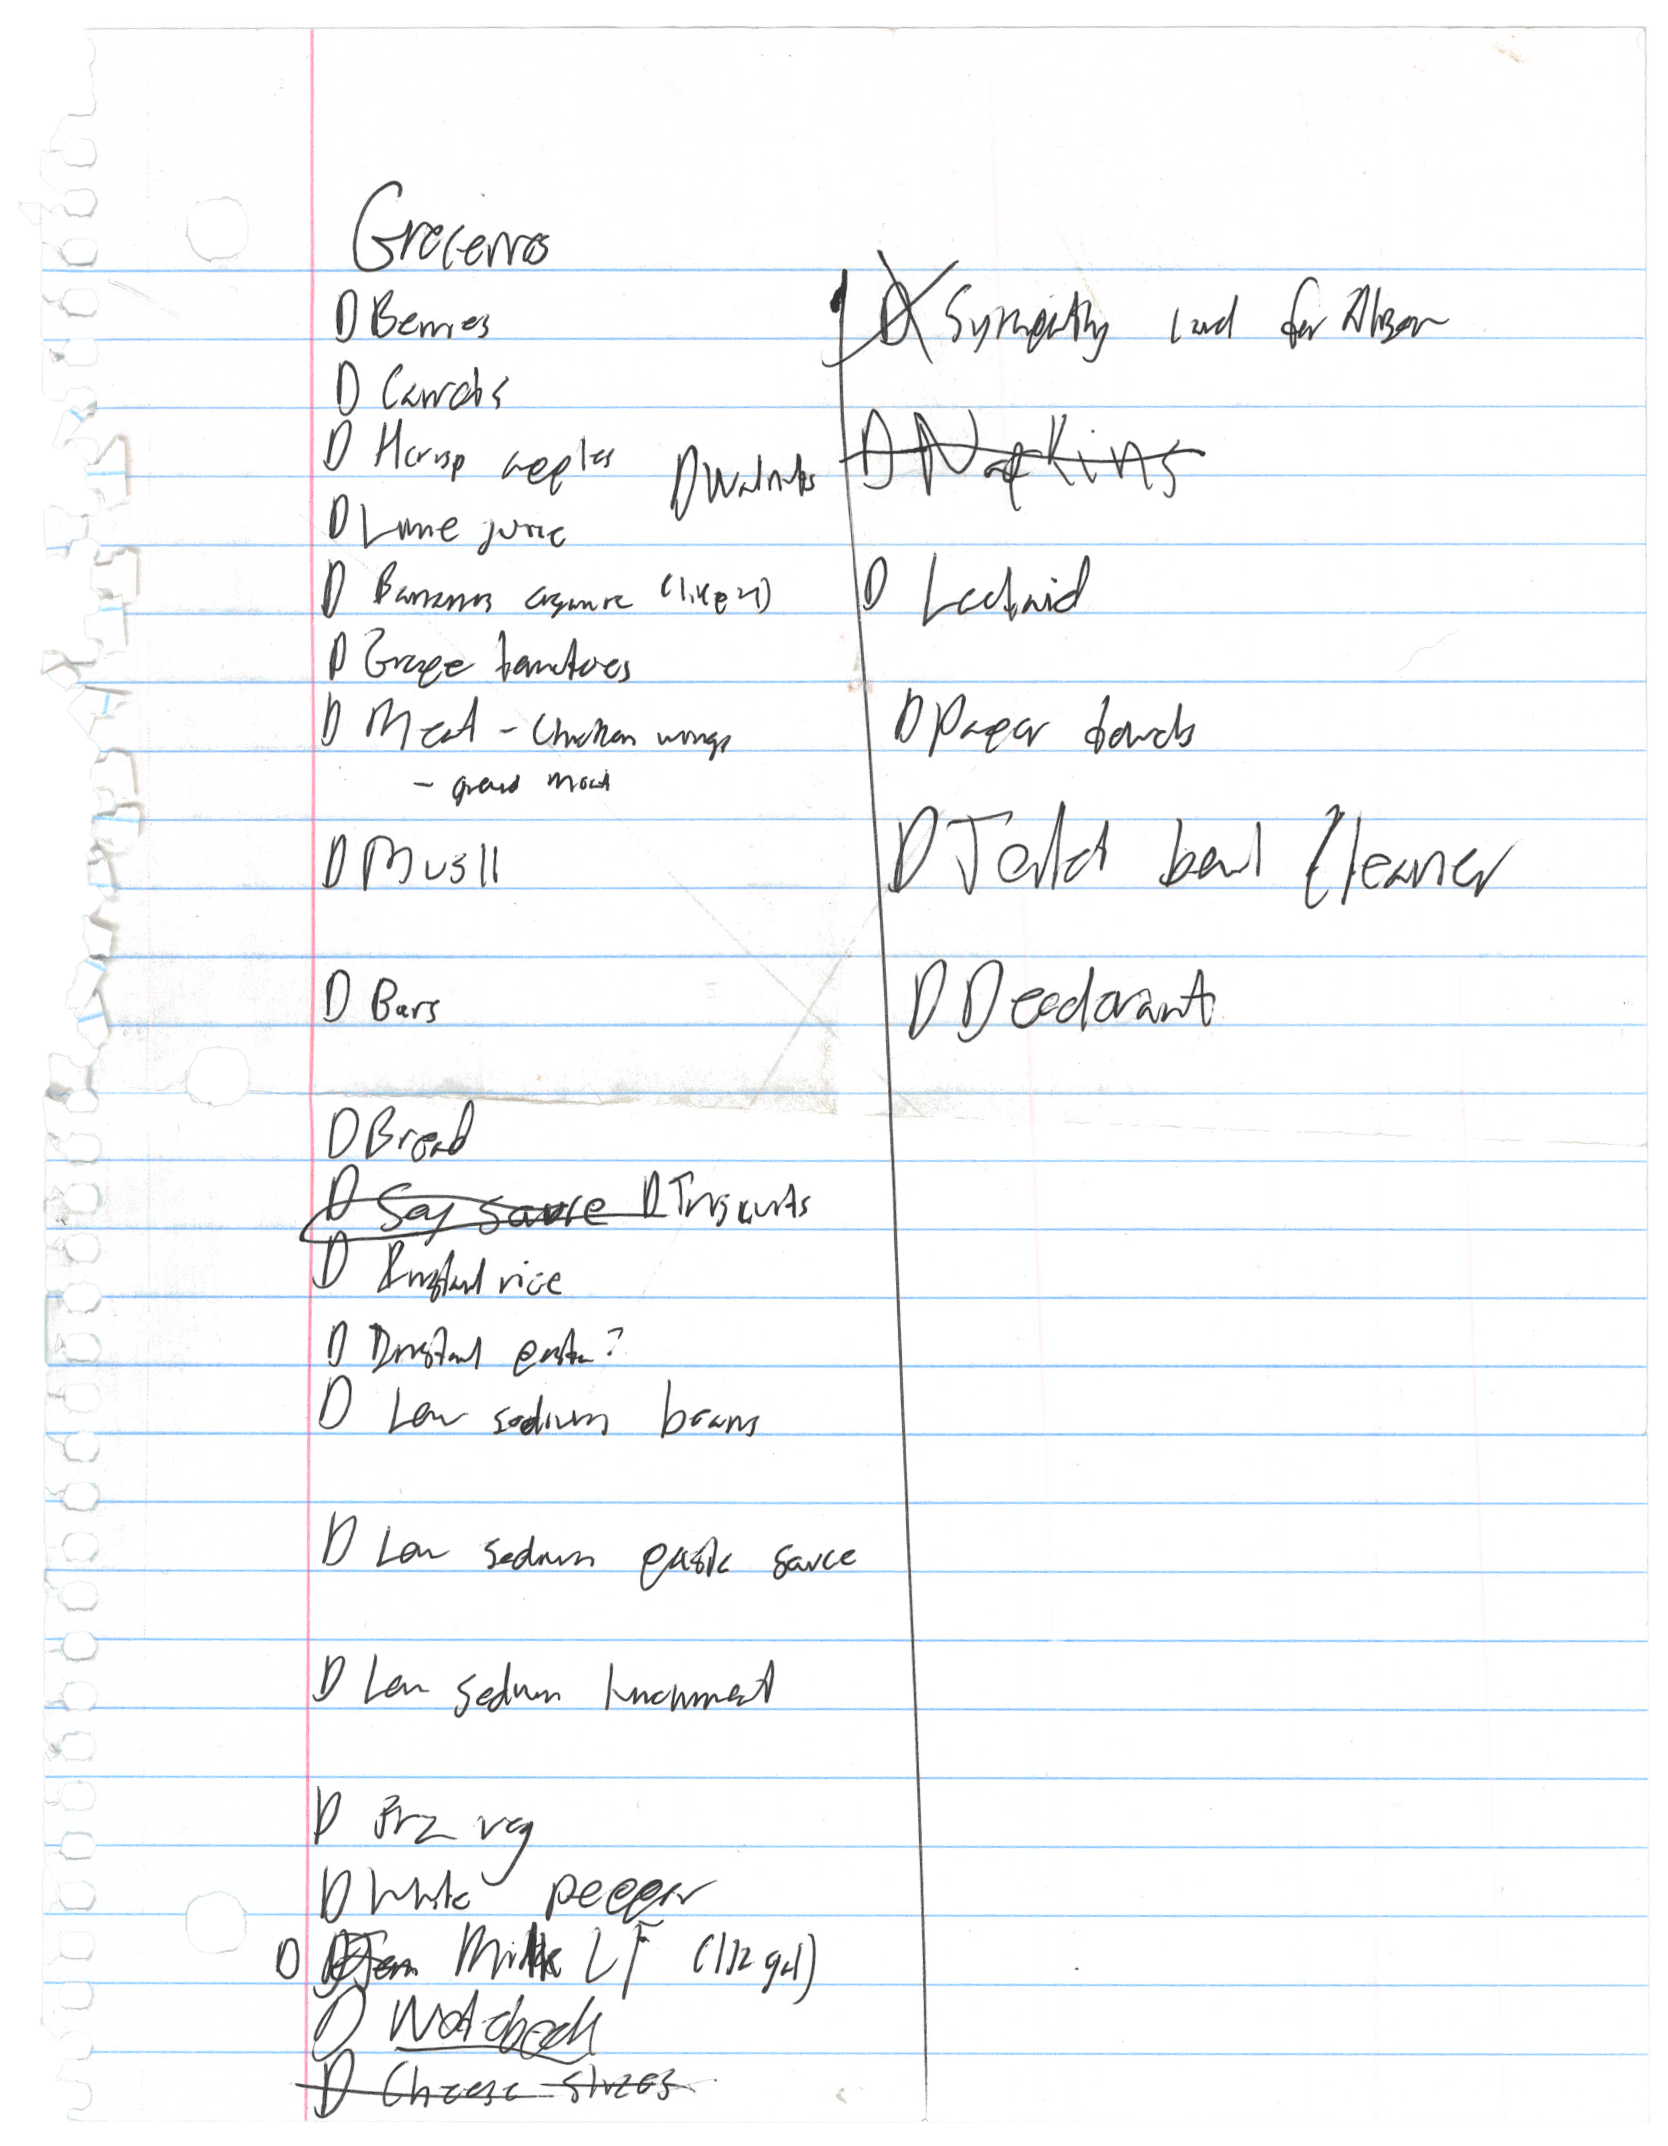 Groceries
Berries
Carrots
Hcrisp apples
Walnuts
Lime juice
Bananas organic (like 4)
Grape tomatoes
Meat - Chicken wings
- ground meat
Musli
Bars
Bread
Soy sauce
Triscuits
Instant rice
Instant pasta?
Low sodium beans
Low sodium pasta sauce
Low sodium lunchmeat
Frz veg
White pepper
Milk LF (1/2 gal)
Notebook
Cheese slices
Sympathy card for Alison
Napkins
Lactaid
Paper towels
Toilet bowl Cleaner
Deodorant